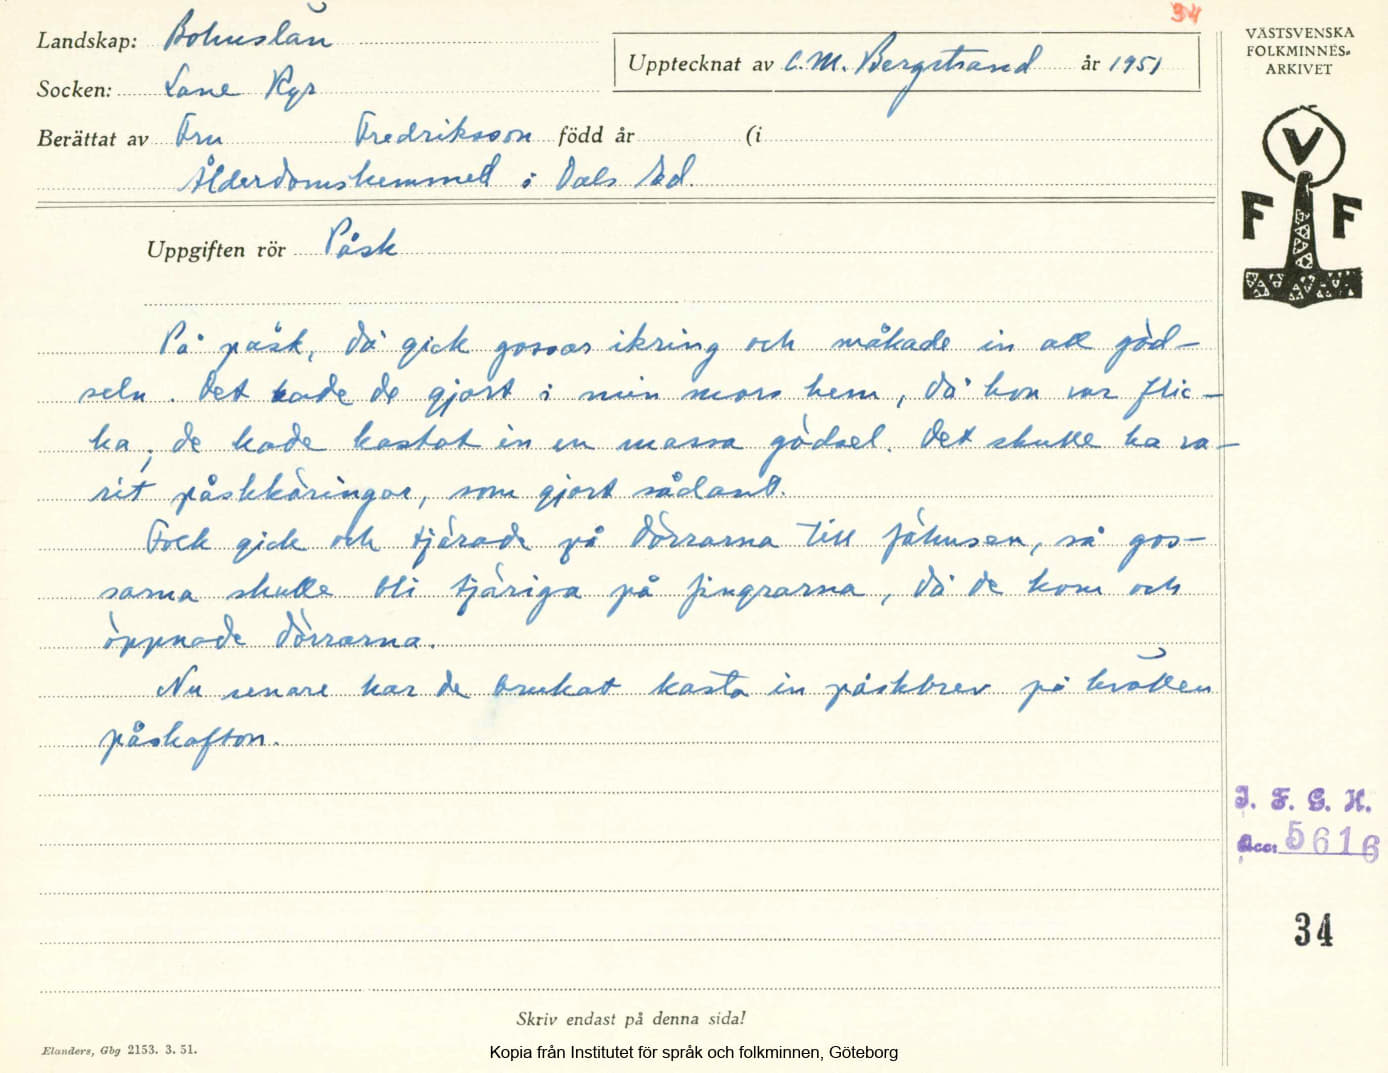 34
Landskap: Bohuslän
Upptecknat av C.M. Bergstrand år 1951
Socken: Lane Ryr
Berättat av Fru Fredriksson född år (i
Ålderdomshemmet i Dals Ed.
VÄSTSVENSKA
FOLKMINNES-
ARKIVET
V
F F
Uppgiften rör Påsk
På påsk, då gick gossar ikring och måkade in all göd-
seln. Det hade de gjort i min mors hem, då hon var flic-
ka, de hade kastat in en massa gödsel. Det skulle ha va-
rit påskkäringar, som gjort sådant.
Folk gick och tjärade på dörrarna till fähusen, så gos-
sarna skulle bli tjäriga på fingrarna, då de kom och
öppnade dörrarna.
Nu senare har de brukat kasta in påskbrev på kvällen
påskafton.
I. F. G. H.
Acc: 5616
34
Skriv endast på denna sida!
Elanders, Gbg 2153. 3. 51.
Kopia från Institutet för språk och folkminnen, Göteborg